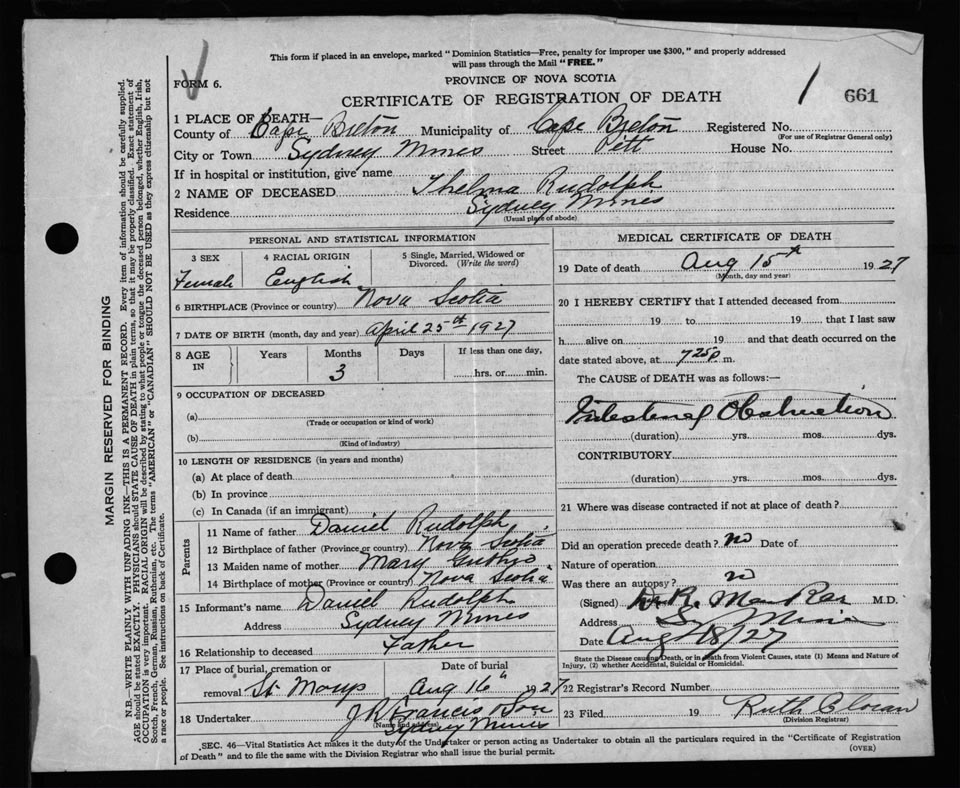 This form if placed in an envelope, marked "Dominion Statistics—Free, penalty for improper use $300," and properly addressed
will pass through the Mail "FREE."
FORM 6.
PROVINCE OF NOVA SCOTIA
CERTIFICATE OF REGISTRATION OF DEATH
1 661
1 PLACE OF DEATH—
County of Cape Breton Municipality of Cape Breton Registered No.
(For use of Registrar General only)
City or Town Sydney Mines Street Pitt House No.
If in hospital or institution, give name
2 NAME OF DECEASED Thelma Rudolph
Residence Sydney Mines
(Usual place of abode)
PERSONAL AND STATISTICAL INFORMATION
3 SEX 4 RACIAL ORIGIN 5 Single, Married, Widowed or
Divorced. (Write the word)
Female English
6 BIRTHPLACE (Province or country) Nova Scotia
7 DATE OF BIRTH (month, day and year) April 25th 1927
8 AGE IN Years Months Days If less than one day,
3 hrs. or min.
9 OCCUPATION OF DECEASED
(a)
(Trade or occupation or kind of work)
(b)
(Kind of industry)
10 LENGTH OF RESIDENCE (in years and months)
(a) At place of death
(b) In province
(c) In Canada (if an immigrant)
Parents
11 Name of father Daniel Rudolph
12 Birthplace of father (Province or country) Nova Scotia
13 Maiden name of mother Mary
14 Birthplace of mother (Province or country) Nova Scotia
15 Informant's name Daniel Rudolph
Address Sydney Mines
16 Relationship to deceased Father
17 Place of burial, cremation or Date of burial
removal St. Marys Aug 16th 1927
18 Undertaker J R Francis & Son
(Name and address)
Sydney Mines
MEDICAL CERTIFICATE OF DEATH
19 Date of death Aug 15th 1927
(Month, day and year)
20 I HEREBY CERTIFY that I attended deceased from
19 to 19 that I last saw
h alive on 19 and that death occurred on the
date stated above, at 7 25 p m.
The CAUSE of DEATH was as follows:—
Intestinal Obstruction
(duration) yrs. mos. dys.
CONTRIBUTORY
(duration) yrs. mos. dys.
21 Where was disease contracted if not at place of death?
Did an operation precede death? no Date of
Nature of operation
Was there an autopsy? no
(Signed) M.D.
Address Sy Mines
Date Aug 18/27
State the Disease causing Death, or in death from Violent Causes, state (1) Means and Nature of
Injury, (2) whether Accidental, Suicidal or Homicidal.
22 Registrar's Record Number
23 Filed 19 Ruth
(Division Registrar)
SEC. 46—Vital Statistics Act makes it the duty of the Undertaker or person acting as Undertaker to obtain all the particulars required in the "Certificate of Registration
of Death" and to file the same with the Division Registrar who shall issue the burial permit. (OVER)
MARGIN RESERVED FOR BINDING
N.B.—WRITE PLAINLY WITH UNFADING INK—THIS IS A PERMANENT RECORD. Every item of information should be carefully supplied.
AGE should be stated EXACTLY. PHYSICIANS should STATE CAUSE OF DEATH in plain terms, so that it may be properly classified. Exact statement of
OCCUPATION is very important. RACIAL ORIGIN will be described by stating to what people or tongue the deceased person belonged, whether English, Irish,
Scotch, French, German, Russian, Ruthenian, etc. The terms "AMERICAN" or "CANADIAN" SHOULD NOT BE USED as they express citizenship but not
a race or people. See instructions on back of Certificate.